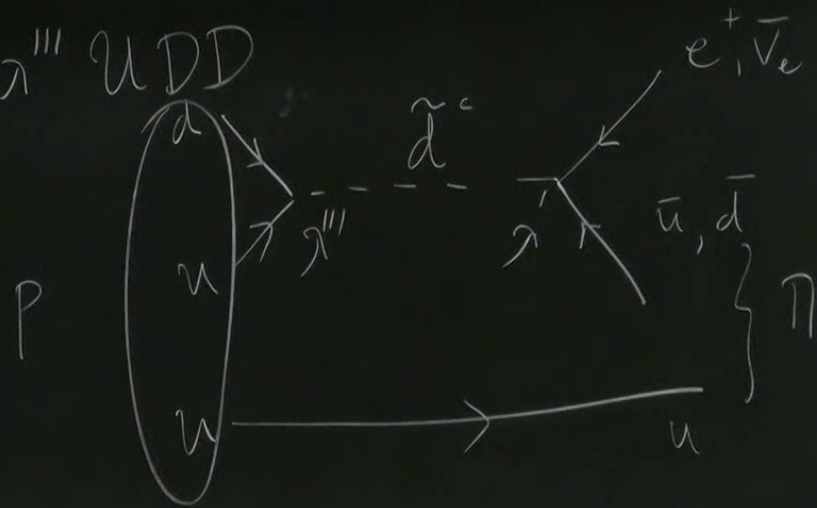 λ''' UDD
e⁺, ν̄ₑ
d
d̃ᶜ
λ'''
λ'
ū, d̄
u
P
} Π
u
u